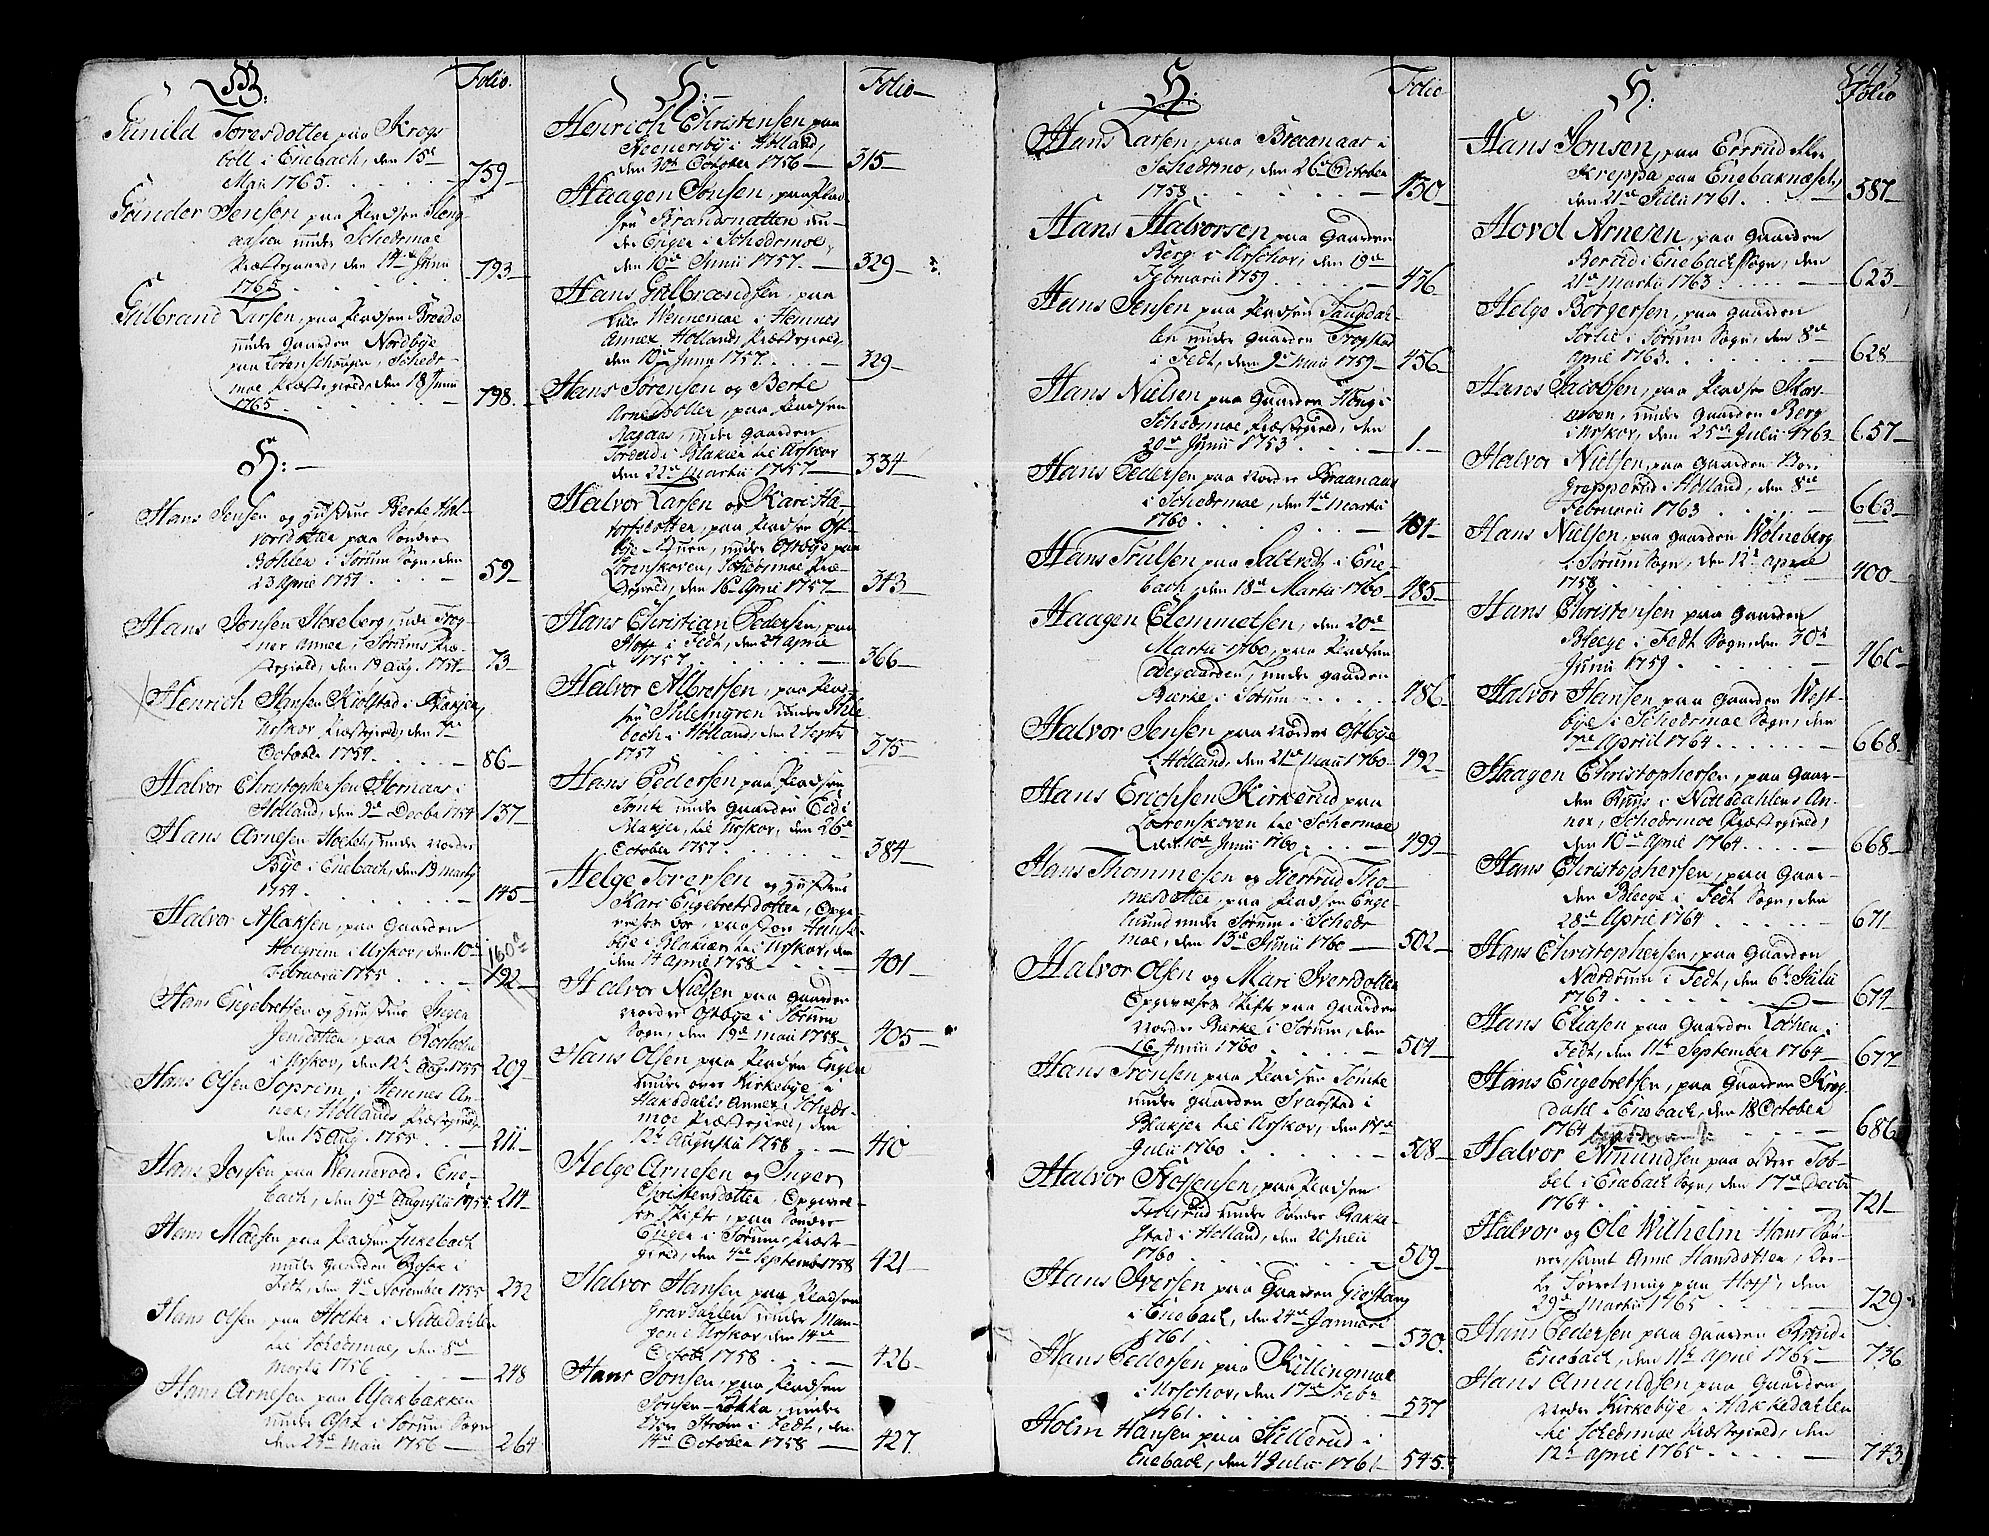 G: Folio.
Gunild Toresdotter paa Krogs
böll i Enebach, den 15de
Maii 1765. 759
Gunder Jensen paa Pladsen Heng
aasen under Schedsmoe
Præstegaard, den 14de Junii
1765 793
Gulbrand Larsen, paa Pladsen Brædæ
under Gaarden Nordbye
paa Lørenschougen, Scheds-
moe Præstegield, den 18 Junii
1765 798
H:
Hans Jensen og Hustrue Berte Hal-
vorsdotter paa Søndre
Bøhler i Sørum Sogn, den
23 April 1754 59
Hans Jonsen Hexeberg, udi Frog-
ner Annex, Sørums Præ-
stegield, den 19 Aug. 1754 73
Henrich Hansen Kiolstad i Blakjer,
Urskov Præstegield, den 7de
October 1754 86
Halvor Christophersen Hornaas i
Høland, den 9de Decbr 1754 137
Hans Arnesen Holter, under Nordre
Bye i Enebach, den 19 Marty
1754 145
Halvor Aslaksen, paa Gaarden
Hoegrim i Urskov, den 10de
Februarii 1755 160a
192
Hans Engebretsen og Hustrue Inger
Jensdotter, paa
i Urskov, den 12te Aug. 1755 209
Hans Olsen Soprim, i Hemnes An-
nex, Hølands Præstegield
den 15 Aug. 1755 211
Hans Jonsen paa Vennevold i Ene-
bach, den 19de Augustii 1755 214
Hans Madsen paa Pladsen Finkebach
under Gaarden
Fedt, den 4de November 1755 232
Hans Olsen paa Holter i Nittedahlen
til Schedsmoe, den 8de
Martii 1756 248
Hans Arnesen paa Ajakbakken
under Ost i Sørum Sogn
den 25de Maii 1756 264
H: Folio
Henrich Christensen paa
Kennerby i Høland,
den 20de October 1756 315
Haagen Jonsen, paa Plad-
sen Brandsnatten un-
der Enger i Schedsmoe,
den 10de Junii 1757 329
Hans Gulbrandsen, paa
Lille Wennemoe i Hemnes
Annex, Hølands Præstegield,
den 10de Junii 1757 329
Hans Sørensen og Berte
Arnesdotter, paa Pladsen
Aagaas, under Gaarden
Tordrud i Blakier til Urskov
den 22de Martii 1757 334
Halvor Larsen og Kari Ha-
vorsdotter, paa Pladsen Øst-
bye-Duen, under Østbye paa
Lørenskoven, Schedsmoe Præ-
stegield, den 16 Aprii 1757 343
Hans Christian Pedersen, paa
Hoff i Fedt, den 24 Aprii
1757 366
Halvor Albretsen, paa Plad-
sen Ihlemyren under Ihle
bech i Høland, den 2 Septbr
1757 375
Hans Pedersen paa Pladsen
Tomte under Gaarden Eed i
Blakjer til Urskov, den 26de
October 1757 384
Helge Torersen og Hustrue
Kari Engebretsdotter, Opgi-
velses Bor, paa Pladsen Hanse-
bye i Blakiær til Urskov, den
den 14 April 1758 401
Halvor Nielsen paa Gaarden
Nordre Østbye i Sørum
Sogn, den 19de Maii 1758 405
Hans Olsen paa Pladsen Engen
under øvre Kirkebye i
Hakedahls Annex, Scheds-
moe Præstegield, den
12te Augustii 1758 410
Helge Arnesen og Inger
Christensdotter, Opgivel-
ses Skifte, paa Søndre
Enger i Sørum, Præste-
gield, den 4de September 1758 421
Halvor Hansen paa Pladsen
Gravdahlen under Man-
gen i Urskov, den 14de
October 1758 426
Hans Jonsen, paa Pladsen
Jonsen-Løkka, under
Strøm i Fedt, den
14de October 1758 427
H: Folio
Hans Larsen, paa Braanaas i
Schedsmo, den 26de October
1758 430
Hans Halvorsen paa Gaarden
Berg i Urschov, den 19de
Febmarii 1759 436
Hans Jensen paa Pladsen Saugdah-
len under Gaarden Frogstad
i Fedt, den 9de Maii 1759 456
Hans Nielsen paa Gaarden Høng i
Schedsmoe Præstegield, den
20de Junii 1753 1
Hans Pedersen paa Nordre Braanaas
i Schedsmoe, den 4de Martii
1760 484
Hans Trulsen paa Saltvedt i Ene-
bach, den 18de Martii 1760 485
Haagen Clemmetsen, den 20de
Martii 1760, paa Pladsen
Ødegaarden, under Gaarden
Bierke i Sørum 486
Halvor Jensen paa Nordre Østbye
i Høland, den 21de Maii 1760 492
Hans Erichsen Kirkerud paa
Lørenskoven til Schesmoe
den 10de Junii 1760 499
Hans Thommesen og Giertrud Tho-
mesdotter, paa Pladsen Enge-
lund under Sørum i Scheds-
moe, den 13de Junii 1760 502
Halvor Olsen og Mari Iversdotter
Opgivelses Skifte paa Gaarden
Nordre Bierke i Sørum, den
16 Junii 1760 504
Hans Trønsen paa Pladsen Tomte
under Gaarden Svarstad i
Blakjer til Urskov, den 17de
Julii 1760 508
Halvor Stossensen, paa Pladsen
Følsrud under Søndre Bakke-
stad i Høland, den 20 Julii
1760 509
Hans Iversen paa Gaarden Giestang
i Enebach, den 24de Januarii
1761 530
Hans Pedersen paa Killingmoe
i Urschov, den 17de Febr
1761 537
Holm Hansen paa Sillerud i
Enebach, den 4 Julii 1761 545
H: Folio
Hans Jonsen, paa Errud eller
Kreppa paa Enebaknæset,
den 21de Julii 1761 587
Hovel Arnesen, paa Gaarden
Børud i Enebachs Sogn, den
21de Martii 1763 623
Helge Børgersen, paa Gaarden
Sørlie i Sørum Sogn, den 8de
April 1763 628
Hans Jacobsen, paa Pladsen Skor-
under Gaarden Berg
i Urskov, den 25de Julii 1763 657
Halvor Nielsen, paa Gaarden Bon
Grepperud i Høland, den 8de
Februarii 1763 663
Hans Nielsen, paa Gaarden Wolneberg
i Sørum Sogn, den 12te Aprii
1758 400
Hans Christensen paa Gaarden
Bleege i Fedt Sogn, den 30de
Junii 1759 460
Halvor Hansen paa Gaarden West-
bye i Schedsmoe Sogn, den
7de Aprill 1764 668
Haagen Christophersen, paa Gaar-
den Ruus i Nittedahlens An-
nex, Schedsmoe Præstegield,
den 10de April 1764 668
Hans Christophersen, paa Gaar-
den Bleege i Fedt Sogn, den
28de Aprii 1764 671
Hans Christophersen, paa Gaarden
Nordrum i Fedt, den 6te Julii
1764 674
Hans Eliasen paa Gaarden Lochen i
Fedt, den 11te September 1764 677
Hans Engebretsen, paa Gaarden Krog-
dahl i Enebach, den 18 October
1764 686
Halvor Amundsen paa østre Tob-
bel i Enebach Sogn, den 17de Decbr
1764 721
Halvor og Ole Wilhelm Hans Søn-
ner, samt Anne Hansdotter, Der-
es Forretning paa Hoff, den
29de Martii 1765 729
Hans Pedersen paa Gaarden Børud i
Enebach, den 11te April 1765 736
Hans Amundsen paa Gaarden
Nordre Kirkebye i Hakkedahlen
til Schedsmoe Præstegield, den
12te April 1765 743